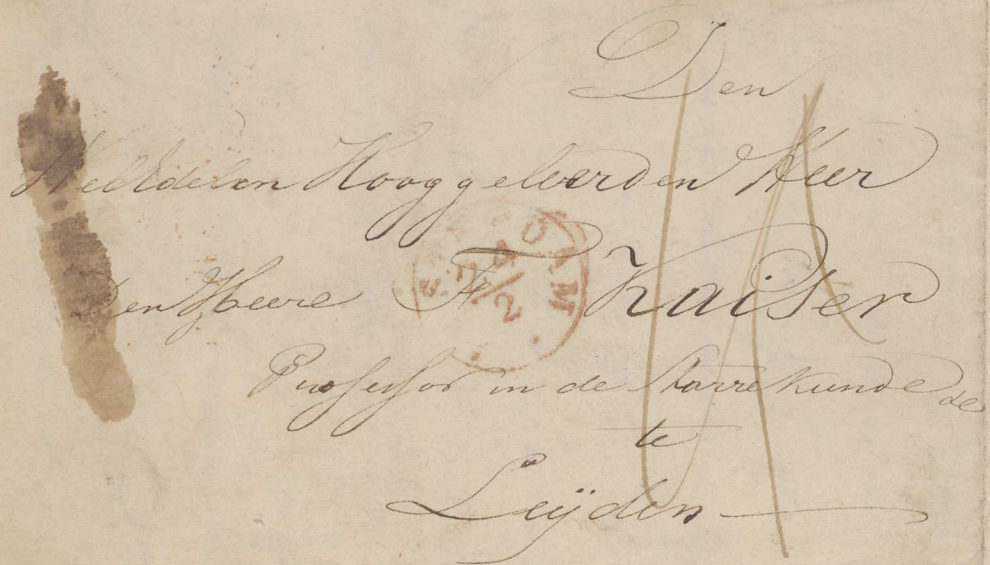 Den
WelEdelen Hooggeleerden Heer
Den Heere F. Kaiser
Professor in de Starrekunde
de
te
Leÿden